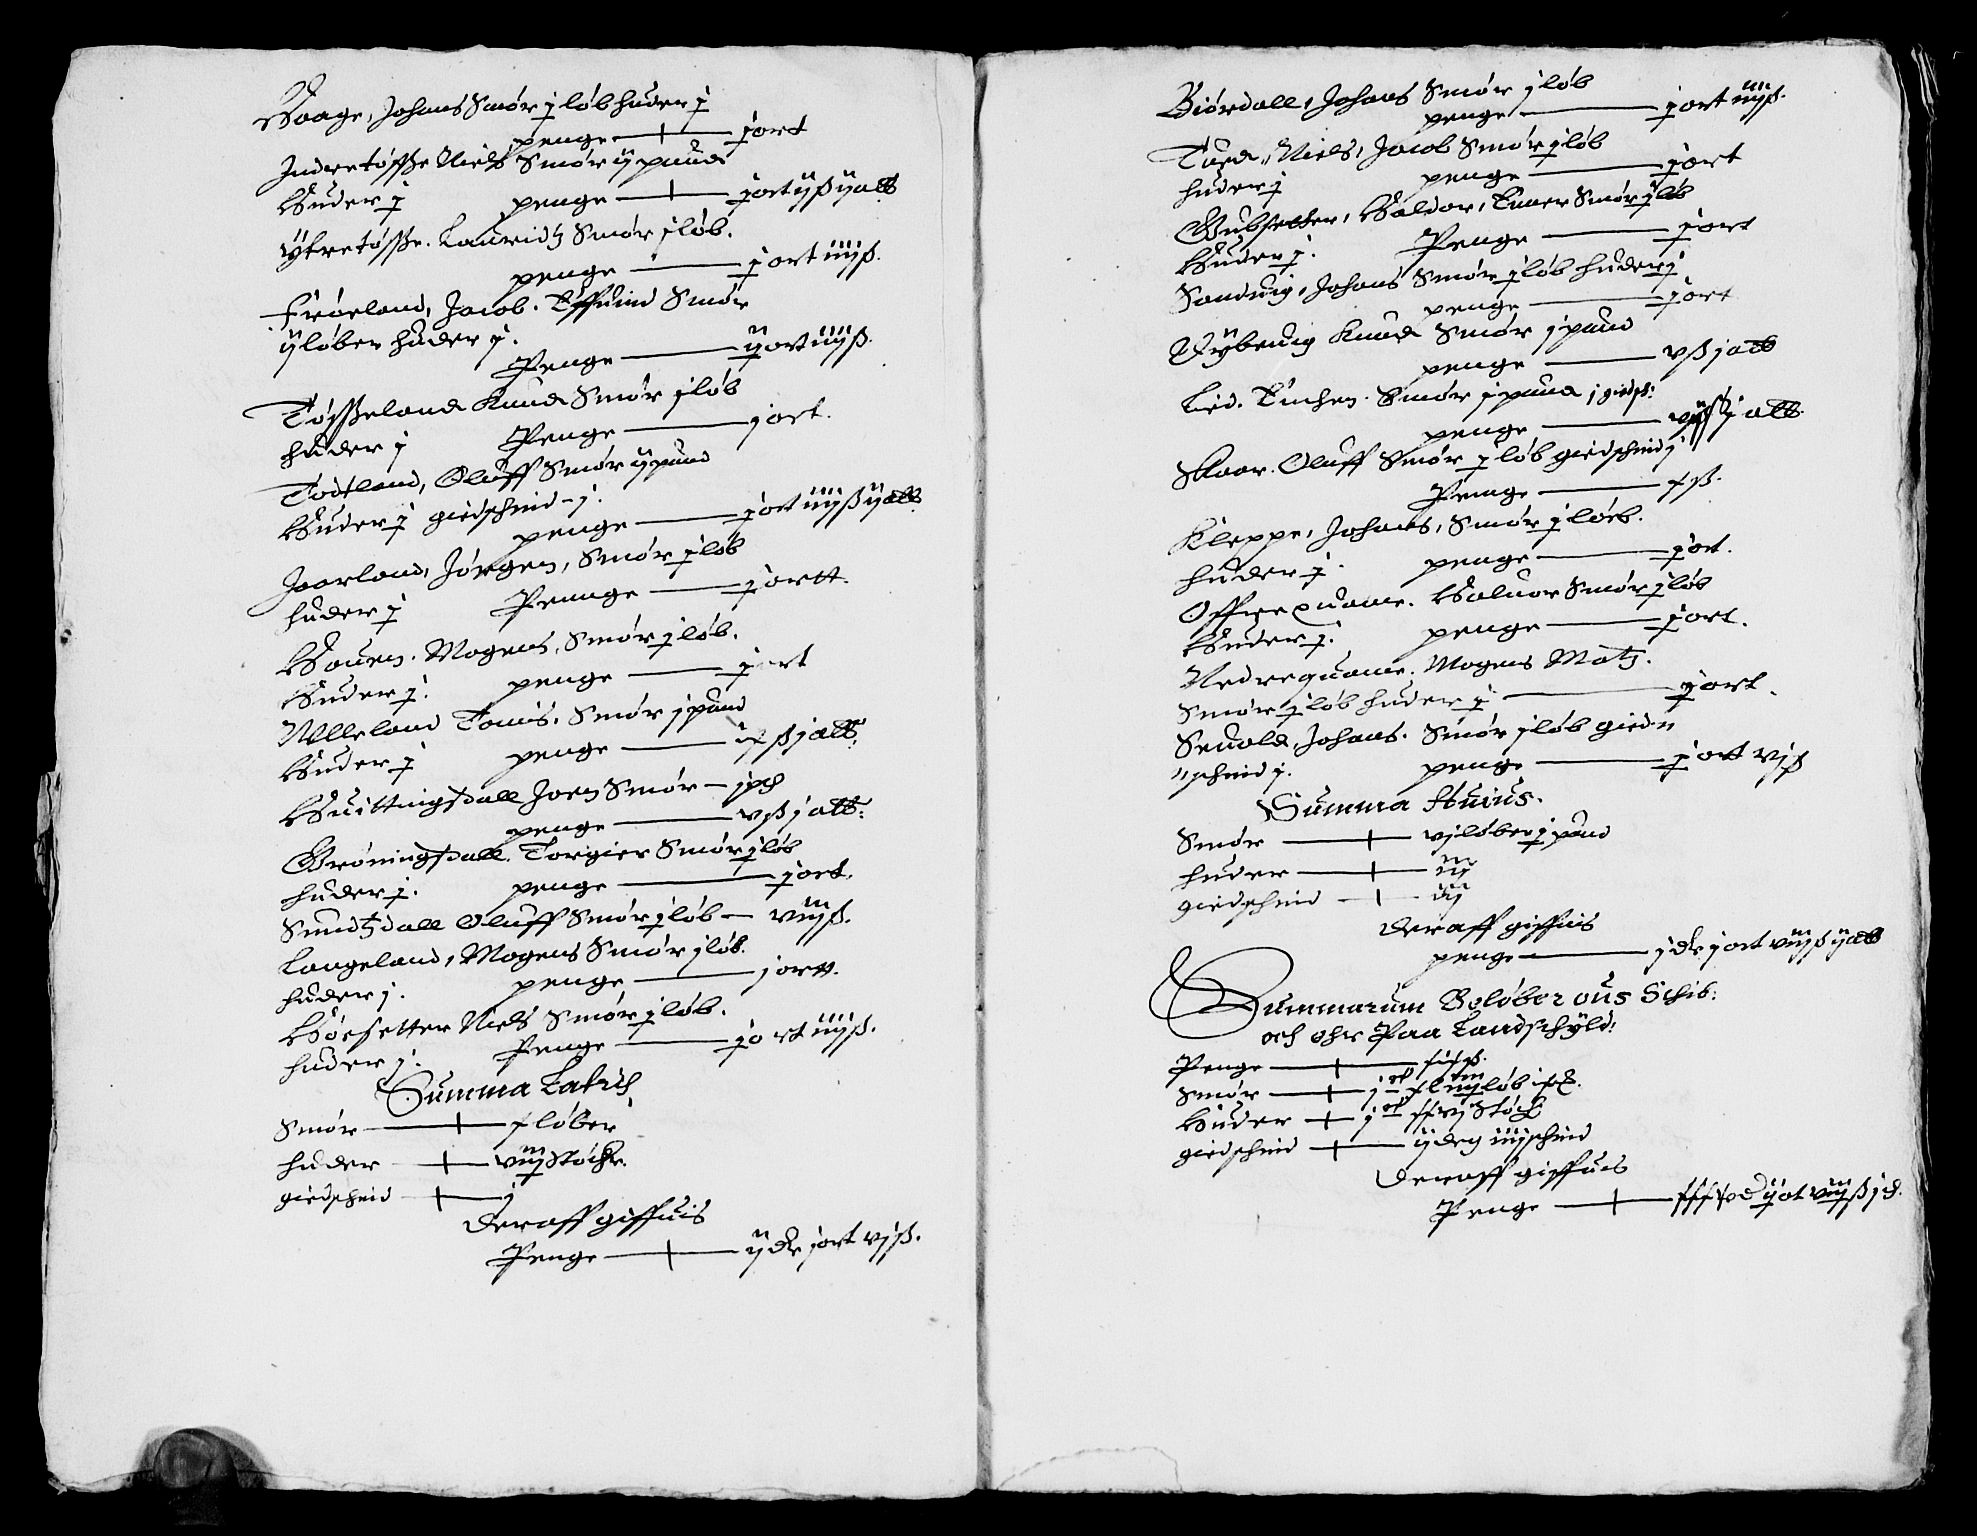 Waage, Johans Smør j løb huder j
penge — j ort
Indretøsse Niels Smør ij pund
Huder j penge — j ort ij ß ij alb
Ytretøsse. Lauridtz Smør j løb.
penge — j ort iiij ß.
Frøeland, Jacob. Effuind Smør
ij løber huder j.
Penge — ij ort iiij ß.
Tøsseland Knud Smør j løb
huder j Penge — j ort.
Todtland, Oluff Smør ij pund
Huder j giedschind – j.
penge — j ort iiij ß ij alb
Joarland, Jørgen, Smør j løb
huder j Pennge — j ortt.
Houen. Mogens, Smør j løb.
Huder j. penge — j ort
Ulleland Tomis. Smør j pund
Huder j penge — ix ß j alb.
Huittingsdall Joen Smør – j pd
penge — v ß j alb:
Grøningsdall. Torgier Smør j løb
huder j. penge — j ort.
Smidtzdall Oluff Smør j løb — viij ß.
Langeland, Mogens Smør j løb.
huder j. penge — j ortt.
Høesetter Niels Smør j løb.
huder j. Penge — j ort iiij ß.
Summa Lateris
Smør — x løber
huder — viiij støcke.
giedscheid — j
Deraff giffuis
Penge — ij dlr j ort vj ß.
Biørdall, Johans Smør j løb
penge — j ort iiij ß.
Tued, Niels, Jacob Smør j løb
huder j penge — j ort
Gubsetter, Haldor, Einer Smør j løb
Huder j. Penge — j ort
Sanduig, Johans Smør j løb huder j
penge — j ort
Dybeuig Knud Smør j pund
penge — v ß j alb
Lid. Tinchen. Smør j pund j giedsk:
penge — vij ß j alb.
Skaar. Oluff Smør j løb giedschind j
Penge — x ß.
Kleppe, Johans, Smør j løeb.
huder j. penge — j ort.
Offre quame. Haluor Smør j løb
Huder j. penge — j ort.
Nedre quame. Mogens Matz.
Smør j løb huder j — j ort.
Seuold, Johans. Smør j løb gied=
=schind j. penge — j ort vj ß
Summa Huius.
Smør — vj løber j pund
huder — iiij
giedscheid — iij
deraff giffuis
penge — j dlr j ort viij ß ij alb
Summarum Beløber ous Schib:
och ohr Paa Landschyld:
Penge —
Smør —
Huder — støck
giedschind — ij deg iiij schind
Deraff giffuis
Penge —